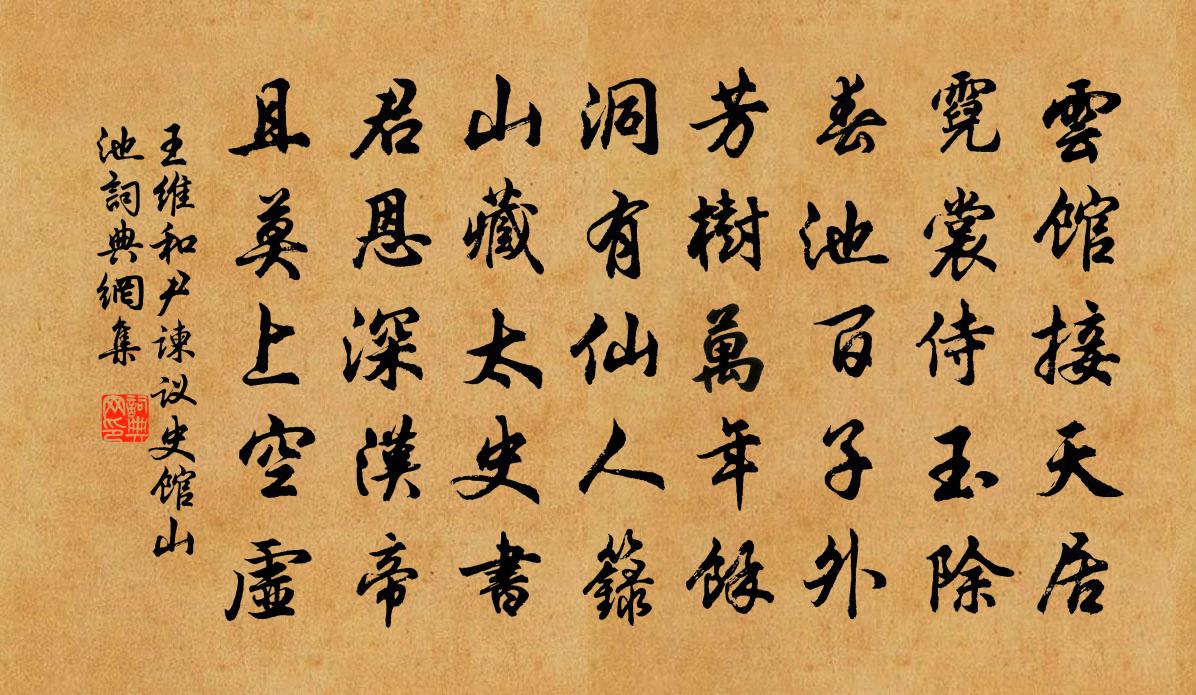 雲館接天居
霓裳侍玉除
春池百子外
芳樹萬年餘
洞有仙人籙
山藏太史書
君恩深漢帝
且莫上空虛
王維和尹諫议史馆山
池詞典網集
詞典
网印